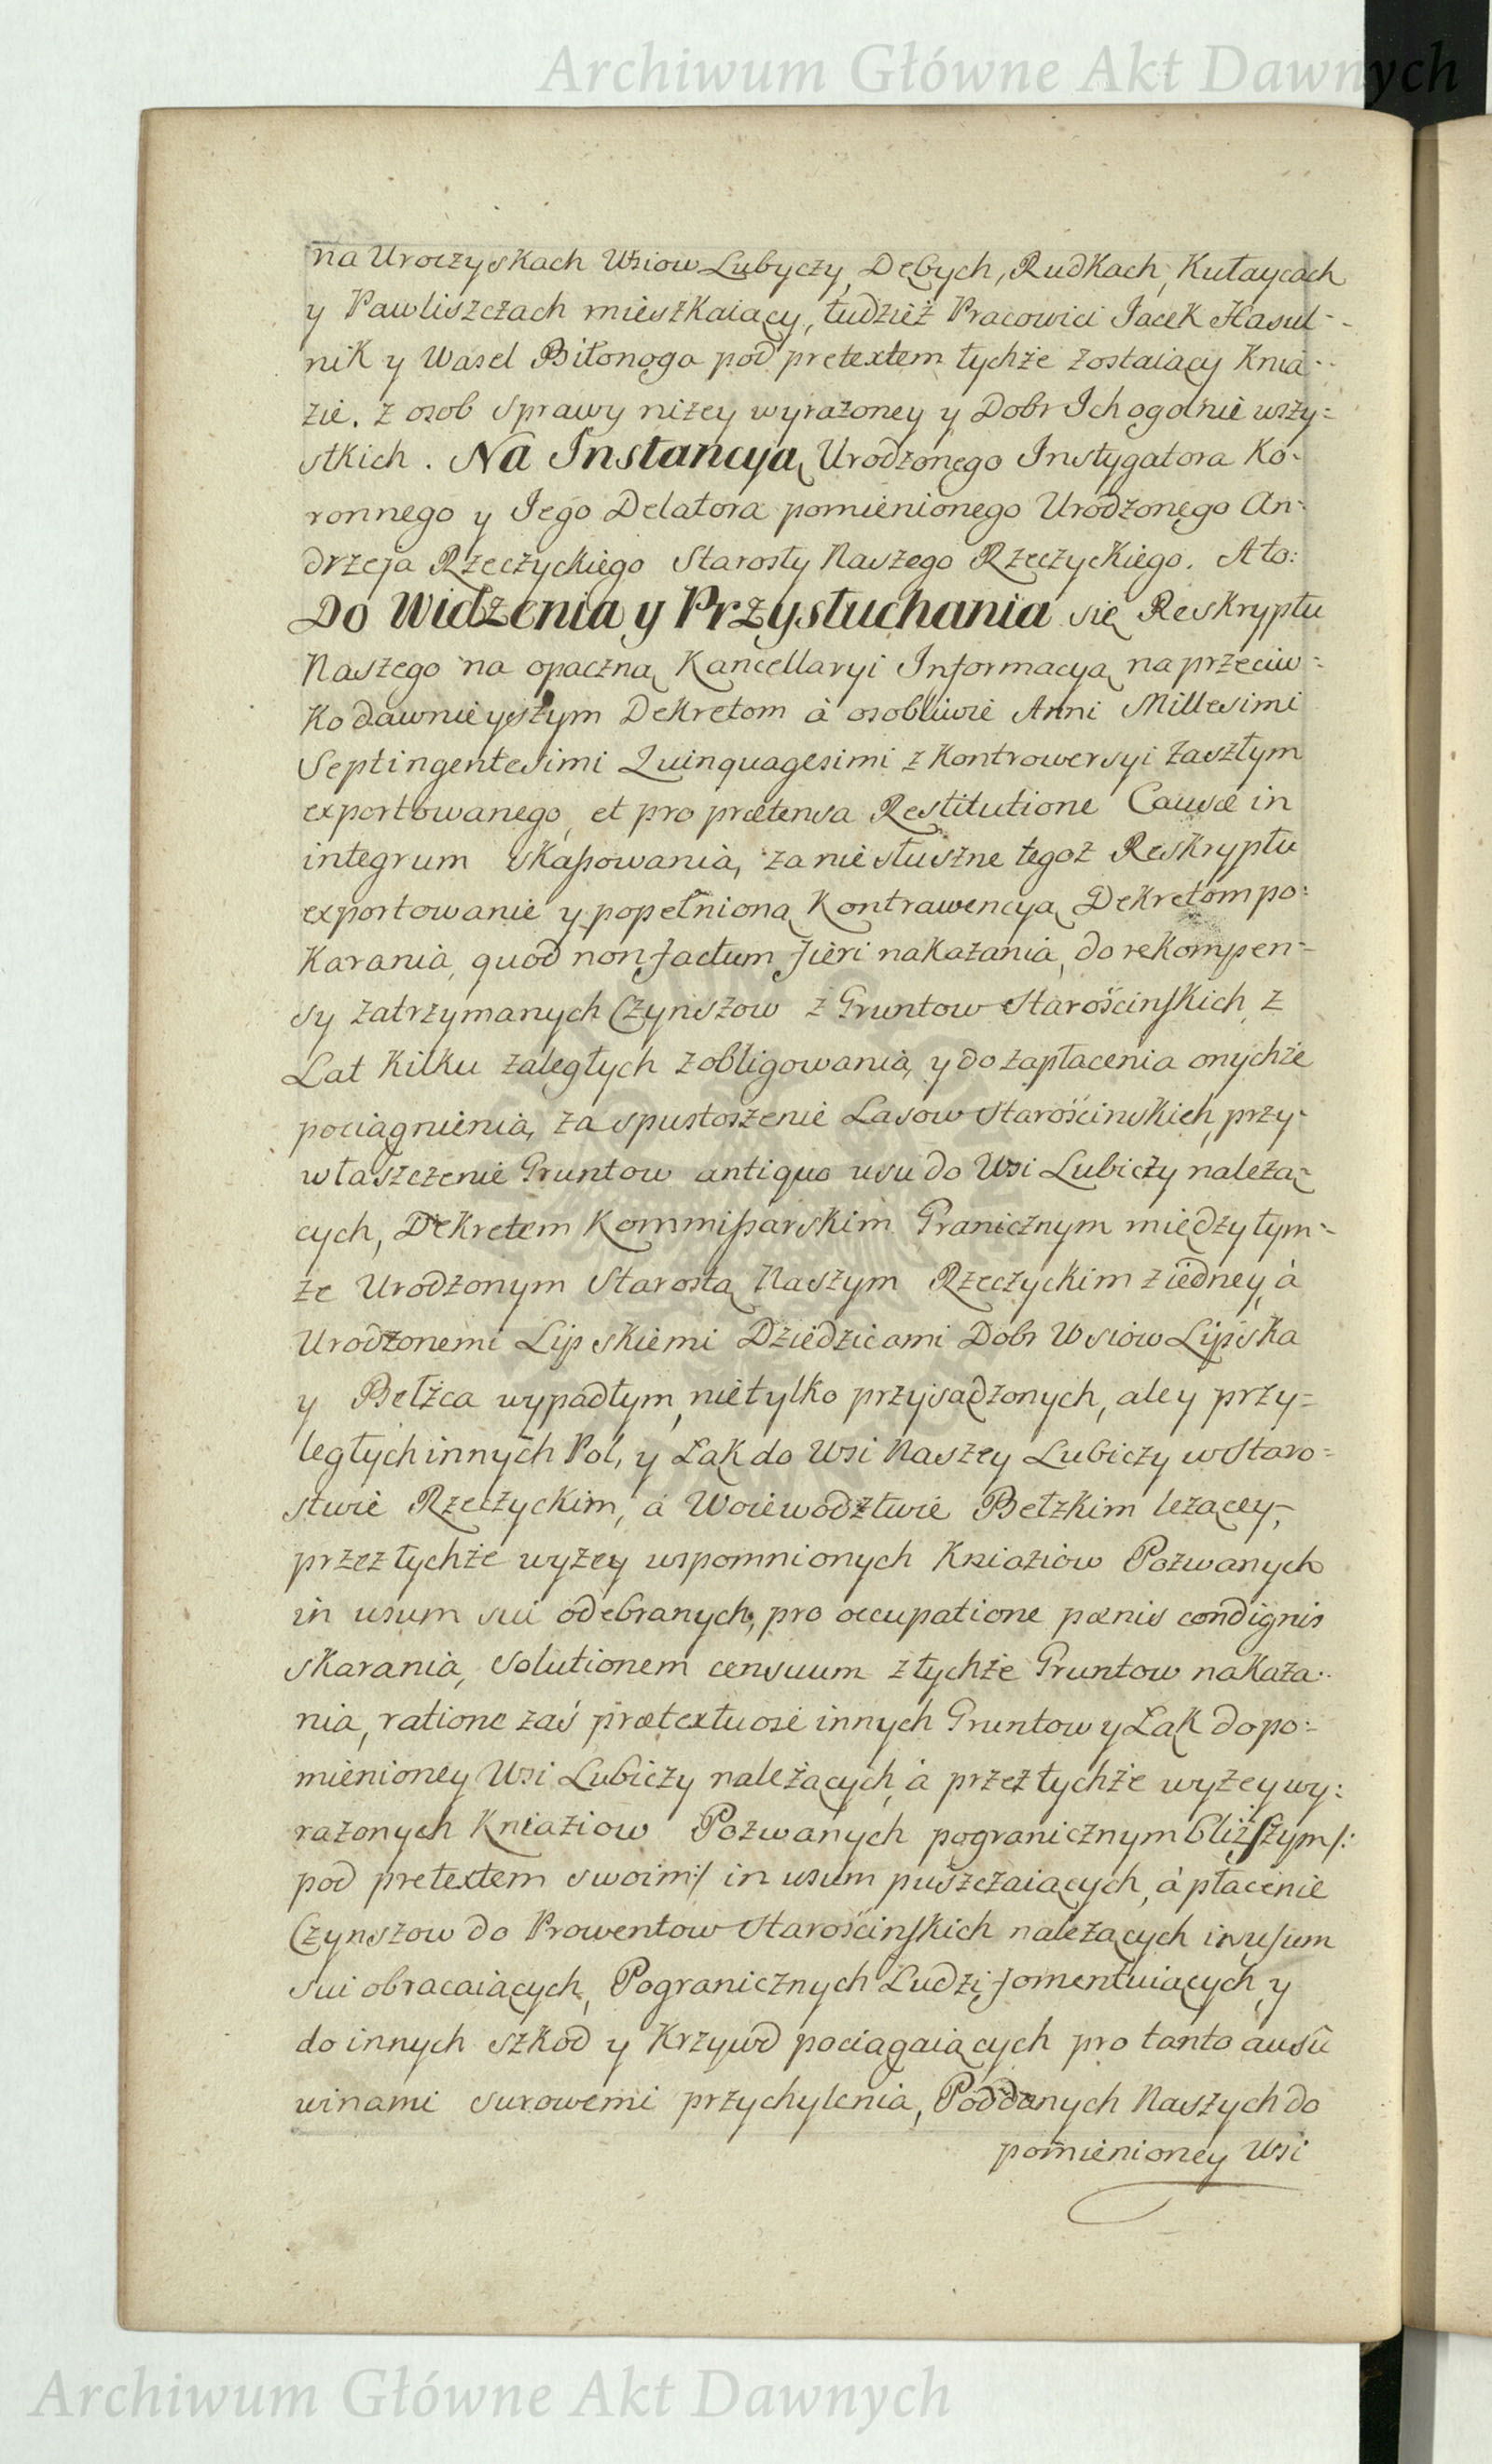 Archiwum Główne Akt Dawnych
na Uroczyskach Wsiow Lubyczy, Dębych, Rudkach, Kułaycach
y Pawliszczach mieszkaiący, tudzież Pracowici Jacek Hasul-
nik y Wasel Biłonoga pod pretextem tychże zostaiący Knia-
zie. z osob sprawy niżey wyrażoney y Dobr Ich ogolnie wszy=
stkich. Na Instancyą Urodzonego Instygatora Ko-
ronnego y Jego Delatora pomienionego Urodzonego An-
drzeja Rzeczyckiego Starosty Naszego Rzeczyckiego. A to:
Do Widzenia y Przysłuchania się Reskryptu
Naszego na opaczną Kancellaryi Informacyą naprzeciw-
ko dawnieyszym Dekretom à osobliwie Anni Millesimi
Septingentesimi Quinquagesimi z Kontrowersyi zaszłym
exportowanego, et pro prætensa Restitutione Causæ in
integrum skaſsowania, za niesłuszne tegoż Reskryptu
exportowanie y popełnioną Kontrawencyą Dekretom po-
karania, quod non factum fieri nakazania, do rekompen-
sy zatrzymanych Czynszow z Gruntow Starościnſkich z
Lat kilku zaległych zobligowania, y do zapłacenia onychże
pociągnienia, za spustoszenie Lasow Starościnskich, przy-
właszczenie Gruntow antiquo usu do Wsi Lubiczy należą-
cych, Dekretem Kommiſsarskim Granicznym między tym-
że Urodzonym Starostą Naszym Rzeczyckim z iedney, à
Urodzonemi Lipskiemi Dziedzicami Dobr Wsiow Lipska
y Bełżca wypadłym, nie tylko przysądzonych, ale y przy=
ległych innych Pol, y Łąk do Wsi Naszey Lubiczy w Staro=
stwie Rzeczyckim, à Woiewodztwie Bełzkim leżącey,
przez tychże wyżey wspomnionych Kniaziow Pozwanych
in usum sui odebranych, pro occupatione pœnis condignis
skarania, solutionem censuum z tychże Gruntow nakaza-
nia, ratione zaś prætextuose innych Gruntow y Łąk do po-
mienioney Wsi Lubiczy należących, à przez tychże wyżey wy:
rażonych Kniaziow Pozwanych pogranicznym bliżſzym /:
pod pretextem swoim :/ in usum puszczaiących, à płacenie
Czynszow do Prowentow Starościnſkich należących in uſum
sui obracaiących, Pogranicznych Ludzi fomentuiących, y
do innych szkod y Krzywd pociągaiących pro tanto ausû
winami surowemi przychylenia, Poddanych Naszych do
pomienioney Wsi
Archiwum Główne Akt Dawnych